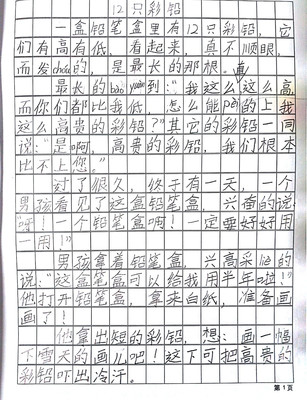 12只彩铅
一盒铅笔盒里有12只彩铅，它
们有高有低，看起来，真不顺眼，
而发cháng的，是最长的那根。
最长的bào yuàn到：“我这么这么高，真
而你们都比我低，怎么能pèi的上我
这么高贵的彩铅？”其它的彩铅一同
说：“是啊，高贵的彩铅，我们根本
比不上您。”
过了很久，终于有一天，一个
男孩看见了这盒铅笔盒，兴奋的说：
“呀！一个铅笔盒啊！一定要好好用
一用！”
男孩拿着铅笔盒，兴高采烈的
说：“这盒笔盒可以给我用半年啦！”
他打开铅笔盒，拿来白纸，准备画
画了！
他拿出短的彩铅，想：画一幅
下雪天的画儿吧！这下可把高贵的
彩铅吓出冷汗。
第1页